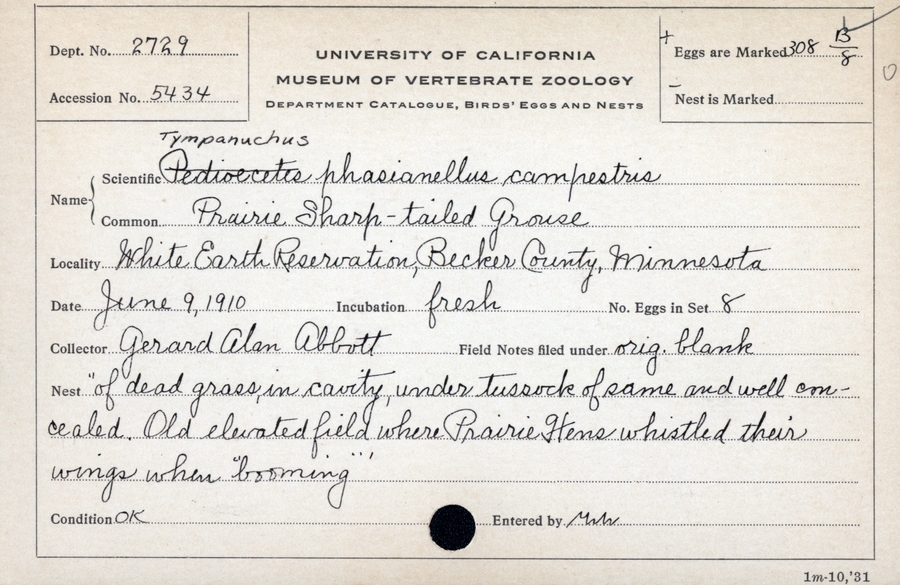 Dept. No. 2729
Accession No. 5434
UNIVERSITY OF CALIFORNIA
MUSEUM OF VERTEBRATE ZOOLOGY
DEPARTMENT CATALOGUE, BIRDS' EGGS AND NESTS
+ Eggs are Marked 308 B/8
- Nest is Marked
Tympanuchus
Name Scientific Pedioecetes phasianellus campestris
Common Prairie Sharp-tailed Grouse
Locality White Earth Reservation, Becker County, Minnesota
Date June 9, 1910 Incubation fresh No. Eggs in Set 8
Collector Gerard Alan Abbott Field Notes filed under orig. blank
Nest "of dead grass, in cavity, under tussock of same and well con-
cealed. Old elevated field where Prairie Hens whistled their
wings when "booming"'
Condition OK Entered by
1m-10,'31